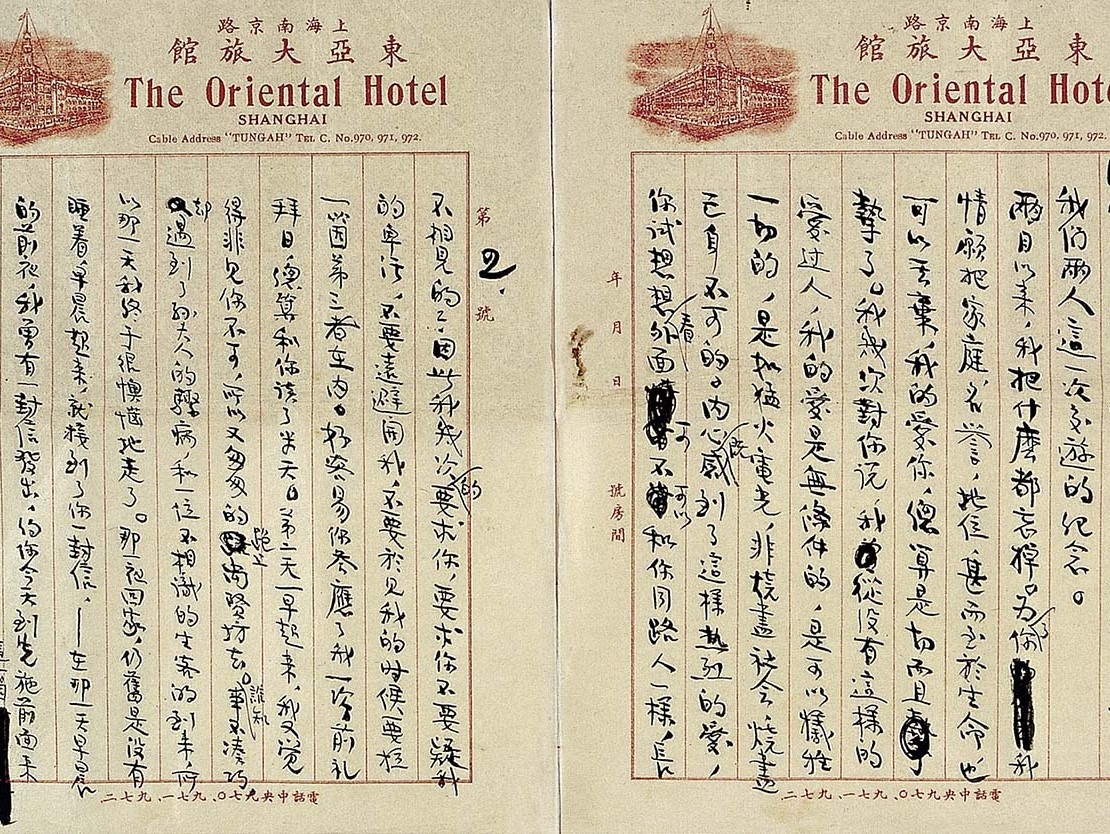 上海南京路
東亞大旅館
The Oriental Hote
SHANGHAI
Cable Address "TUNGAH" TEL C. No.970, 971, 972.
我们兩人這一次交遊的纪念。
兩月以来,我把什麽都忘掉。为了你我
情願把家庭,名誉,地位,甚而至於生命,也
可以丢棄,我的愛你,總算是切而且
摯了。我幾次對你说,我從没有這樣的
愛过人,我的愛是無條件的,是可以犧牲
一切的,是如猛火電光,非燒盡社会,燒盡
己身不可的。内心既感到了這樣热烈的愛,
你试想想看外面可不可以和你同路人一樣,長
年 月 日
號房間
電話中央九七〇、九七一、九七二.
上海南京路
東亞大旅館
The Oriental Hotel
SHANGHAI
Cable Address "TUNGAH" TEL C. No.970, 971, 972.
第2.號
不相見的?因此我幾次的要求你,要求你不要疑我
的卑污,不要遠避開我,不要於见我的时候要拉
一箇第三者在内。好容易你答應了我一次,前礼
拜日,總算和你谈了半天。第二天一早起来,我又覚
得非见你不可,所以又匆匆的跑上尚賢坊去。誰知事不凑巧,
却遇到了孙夫人的驟病,和一位不相識的生客的到来,所
以那一天我终于很懊惱地走了。那一夜回家,仍舊是没有
睡着,早晨起来,就接到了你一封信,——在那一天早晨
的前夜,我曾有一封信發出,约你今天到先施前面来
電話中央九七〇、九七一、九七二.